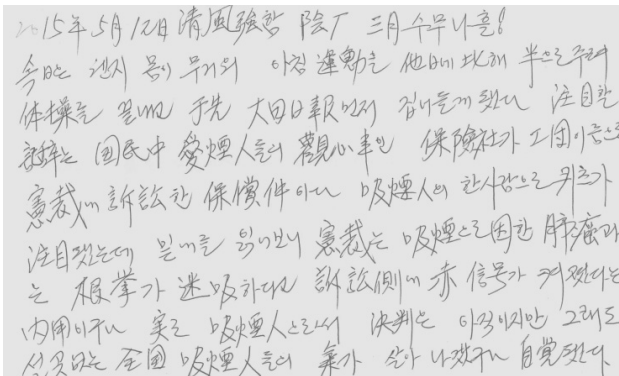 2015年 5月 12日 清風強함 陰 三月 스무나흘!
今日은 몸이 무거워 아침 運動을 他日에 比해 半으로 주려
体操를 끝내고 于先 大田日報 먼저 집어들게 됐다 注目할
記事는 国民中 愛煙人들의 觀心事인 保險社가 工団이름으로
憲裁에 訴訟한 保償件이다 吸煙人의 한사람으로
注目됐는데 읽어보니 憲裁는 吸煙으로 因한 肺癌과
는 根拳가 迷吸하다고 訴訟側에 赤信号가 켜졌다는
内用이구나 実로 吸煙人으로서 決判은 아직이지만 그래도
全国 吸煙人들의 氣가 살아 나겠구나 自覚됐다